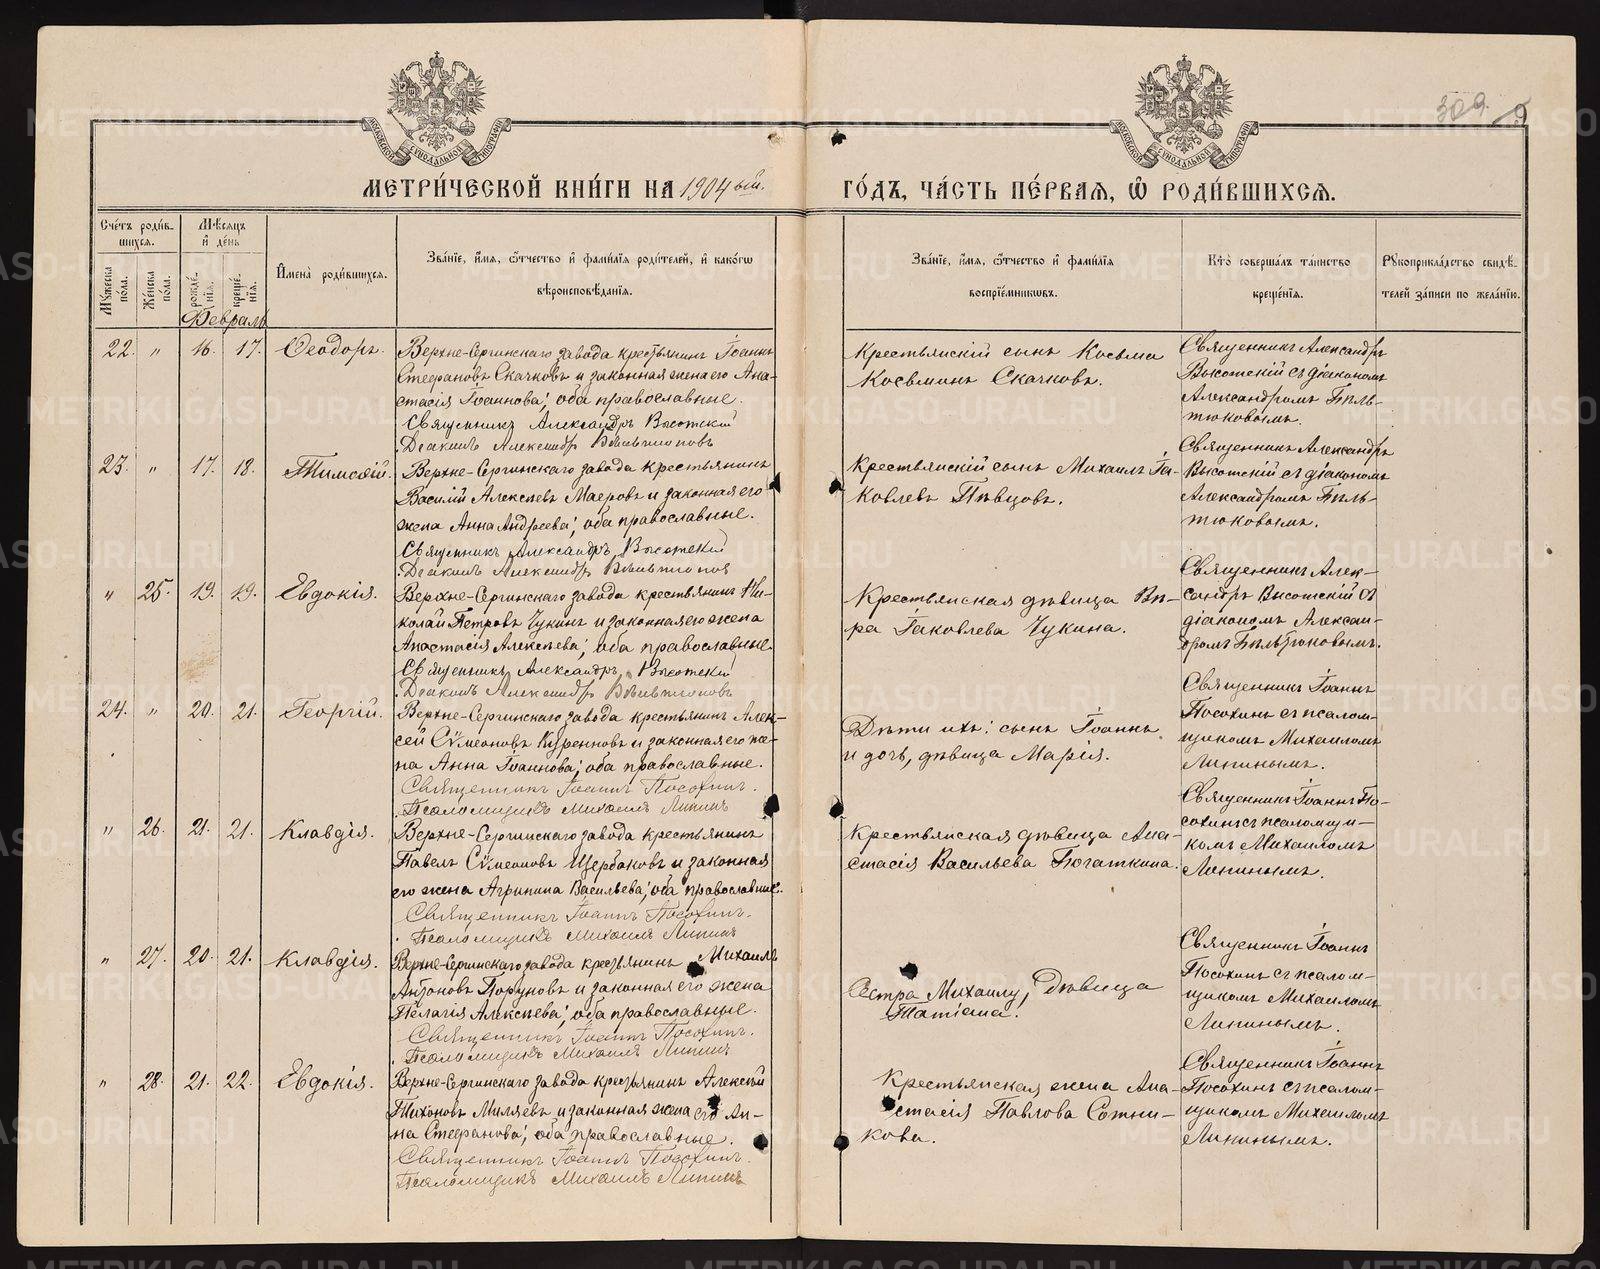 309. 9
МЕТРИ́ЧЕСКОЙ КНИ́ГИ НА 1904ый.
ГО́ДЪ, ЧА́СТЬ ПЕ́РВАЯ, Ѡ РОДИ́ВШИХСѦ.
Сче́тъ роди́в-
шихсѧ.
Мꙋжеска по́ла.
Же́нска по́ла.
Мѣ́сѧцъ
и де́нь
рожде́нїѧ.
креще́нїѧ.
Имена̀ роди́вшихсѧ.
Зва́нїе, и́мѧ, ѻ҆́тчество и фами́лїѧ роди́телей, и како́гѡ
вѣроисповѣ́данїѧ.
Зва́нїе, и́мѧ, ѻ҆́тчество и фами́лїѧ
воспрїе́мникѡвъ.
Кто̀ соверша́лъ та́инство
креще́нїѧ.
Рꙋкоприкла́дство свидѣ́-
телей за́писи по жела́нїю.
Февраль
22. " 16. 17. Ѳеодоръ.
Верхне-Сергинскаго завода крестьянинъ Іоаннъ
Стефановъ Скачковъ и законная жена его Ана-
стасія Іоаннова; оба православные.
Священникъ Александръ Высотскій
Діаконъ Александръ
Крестьянскій сынъ Косьма
Косьминъ Скачковъ.
Священникъ Александръ
Высотскій съ діакономъ
Александромъ Бѣль-
тюковымъ.
23. " 17. 18. Тимоѳей.
Верхне-Сергинскаго завода крестьянинъ
Василій Алексѣевъ Маеровъ и законная его
жена Анна Андреева; оба православные.
Священникъ Александръ Высотскій
Діаконъ Александръ
Крестьянскій сынъ Михаилъ Іа-
ковлевъ Пѣвцовъ.
Священникъ Александръ
Высотскій съ діакономъ
Александромъ Бѣль-
тюковымъ.
" 25. 19. 19. Евдокія.
Верхне-Сергинскаго завода крестьянинъ Ни-
колай Петровъ Чукинъ и законная его жена
Анастасія Алексѣева; оба православные.
Священникъ Александръ Высотскій
Діаконъ Александръ
Крестьянская дѣвица Вѣ-
ра Іаковлева Чукина.
Священникъ Алек-
сандръ Высотскій съ
діакономъ Алексан-
дромъ Бѣльтюковымъ.
24. " 20. 21. Георгій.
Верхне-Сергинскаго завода крестьянинъ Алек-
сей Сѵмеоновъ Куренновъ и законная его же-
на Анна Іоаннова; оба православные.
Священникъ Іоаннъ Посохинъ.
Псаломщикъ Михаилъ Липинъ
Дѣти ихъ: сынъ Іоаннъ
и дочь, дѣвица Марія.
Священникъ Іоаннъ
Посохинъ съ псалом-
щикомъ Михаиломъ
Липинымъ.
" 26. 21. 21. Клавдія.
Верхне-Сергинскаго завода крестьянинъ
Павелъ Сѵмеоновъ Щербаковъ и законная
его жена Агрипина Васильева; оба православные.
Священникъ Іоаннъ Посохинъ.
Псаломщикъ Михаилъ Липинъ
Крестьянская дѣвица Ана-
стасія Васильева Богаткина.
Священникъ Іоаннъ По-
сохинъ съ псаломщи-
комъ Михаиломъ
Липинымъ.
" 27. 20. 21. Клавдія.
Верхне-Сергинскаго завода крестьянинъ Михаилъ
Антоновъ Поруновъ и законная его жена
Пелагія Алексѣева; оба православные.
Священникъ Іоаннъ Посохинъ.
Псаломщикъ Михаилъ Липинъ
Сестра Михаилу, дѣвица
Татіана.
Священникъ Іоаннъ
Посохинъ съ псалом-
щикомъ Михаиломъ
Липинымъ.
" 28. 21. 22. Евдокія.
Верхне-Сергинскаго завода крестьянинъ Алексѣй
Тихоновъ Миляевъ и законная жена его Ан-
на Стефанова; оба православные.
Священникъ Іоаннъ Посохинъ.
Псаломщикъ Михаилъ Липинъ
Крестьянская жена Ана-
стасія Павлова Сотни-
кова.
Священникъ Іоаннъ
Посохинъ съ псалом-
щикомъ Михаиломъ
Липинымъ.
METRIKI.GASO-URAL.RU